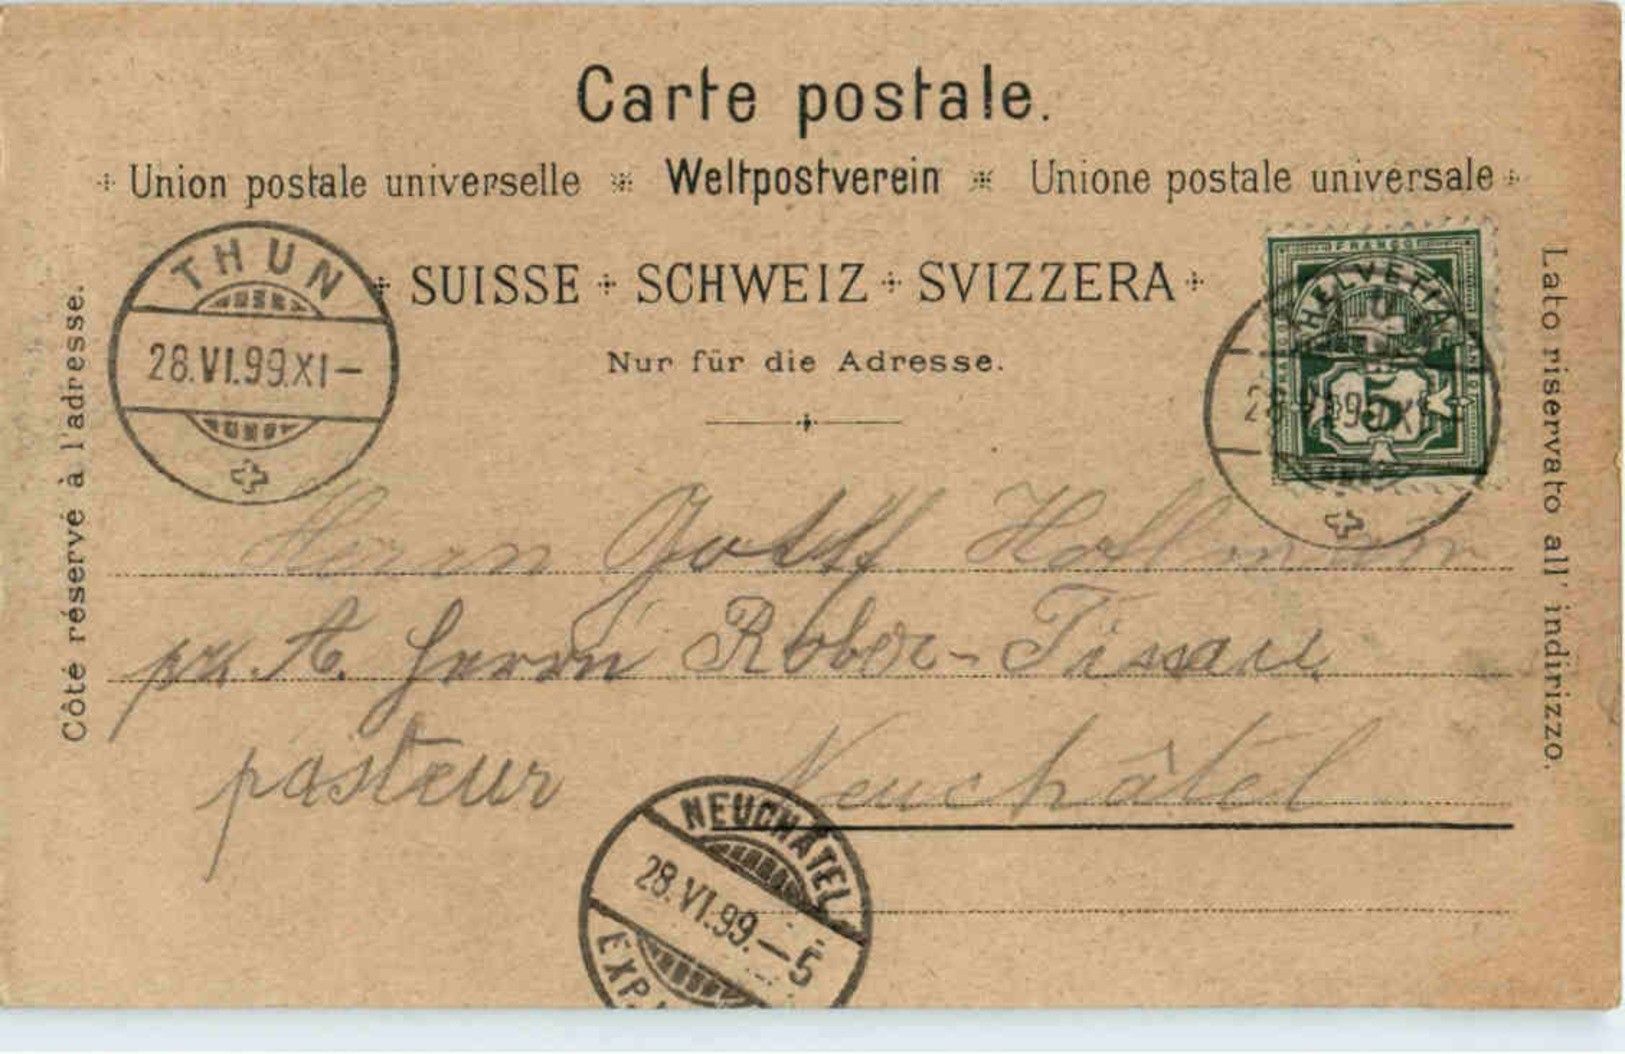 Carte postale.
Union postale universelle Weltpostverein Unione postale universale
SUISSE SCHWEIZ SVIZZERA
Nur für die Adresse.
Côté réservé à l'adresse.
Lato riservato all' indirizzo.
THUN
28.VI.99.XI–
FRANCO
HELVETIA
5
Herrn Gottf
pr. A. Herrn Robert-Tissau
pasteur Neuchâtel
NEUCHÂTEL
28.VI.99.–5
EXP.